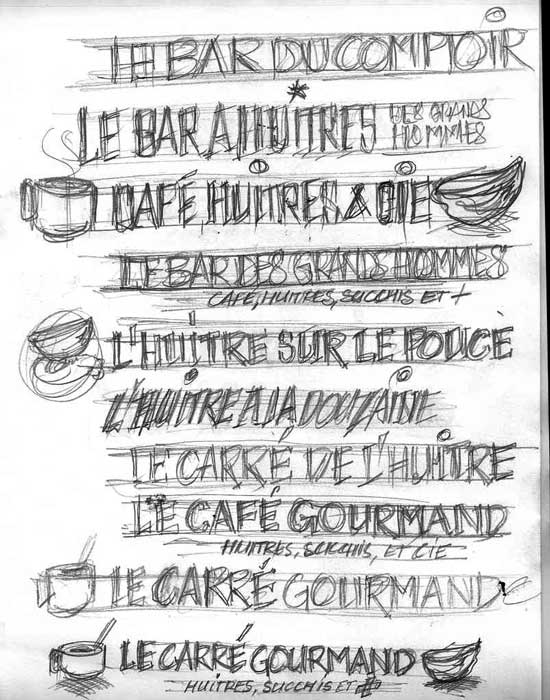 LE BAR DU COMPTOIR
LE BAR A HUITRES DES GRANDS HOMMES
CAFÉ, HUITRES & CIE
LE BAR DES GRANDS HOMMES
CAFE, HUITRES, SUCCHIS ET +
L'HUÎTRE SUR LE POUCE
L'HUITRE A LA DOUZAINE
LE CARRÉ DE L'HUITRE
LE CAFÉ GOURMAND
HUITRES, SUCCHIS, ET CIE
LE CARRÉ GOURMAND
LE CARRÉ GOURMAND
HUITRES, SUCCHIS ET